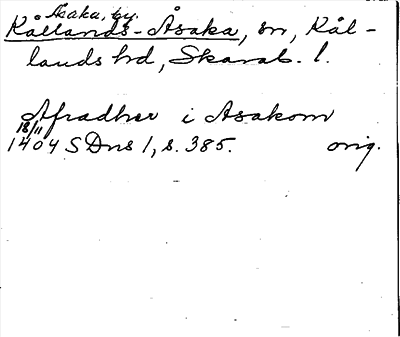 Åsaka, by.
Kållands-Åsaka, sn, Kål-
lands hd, Skarab. l.
Afradher i Asakom
18/11
1404 SDns 1, s. 385. orig.